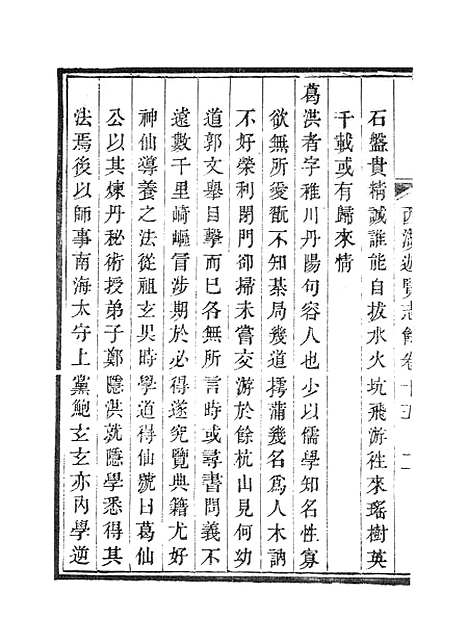 西湖遊覽志餘卷十五
二
石盤貴精誠誰能自拔水火坑飛游往來瑤樹英
千載或有歸來情
葛洪者字稚川丹陽句容人也少以儒學知名性寡
欲無所愛翫不知棊局幾道摴蒲幾名爲人木訥
不好榮利閉門卻掃未嘗交游於餘杭山見何幼
道郭文舉目擊而巳各無所言時或尋書問義不
遠數千里崎嶇冒涉期於必得遂究覽典籍尤好
神仙導養之法從祖玄吳時學道得仙號曰葛仙
公以其煉丹秘術授弟子鄭隱洪就隱學悉得其
法焉後以師事南海太守上黨鮑玄玄亦內學逆